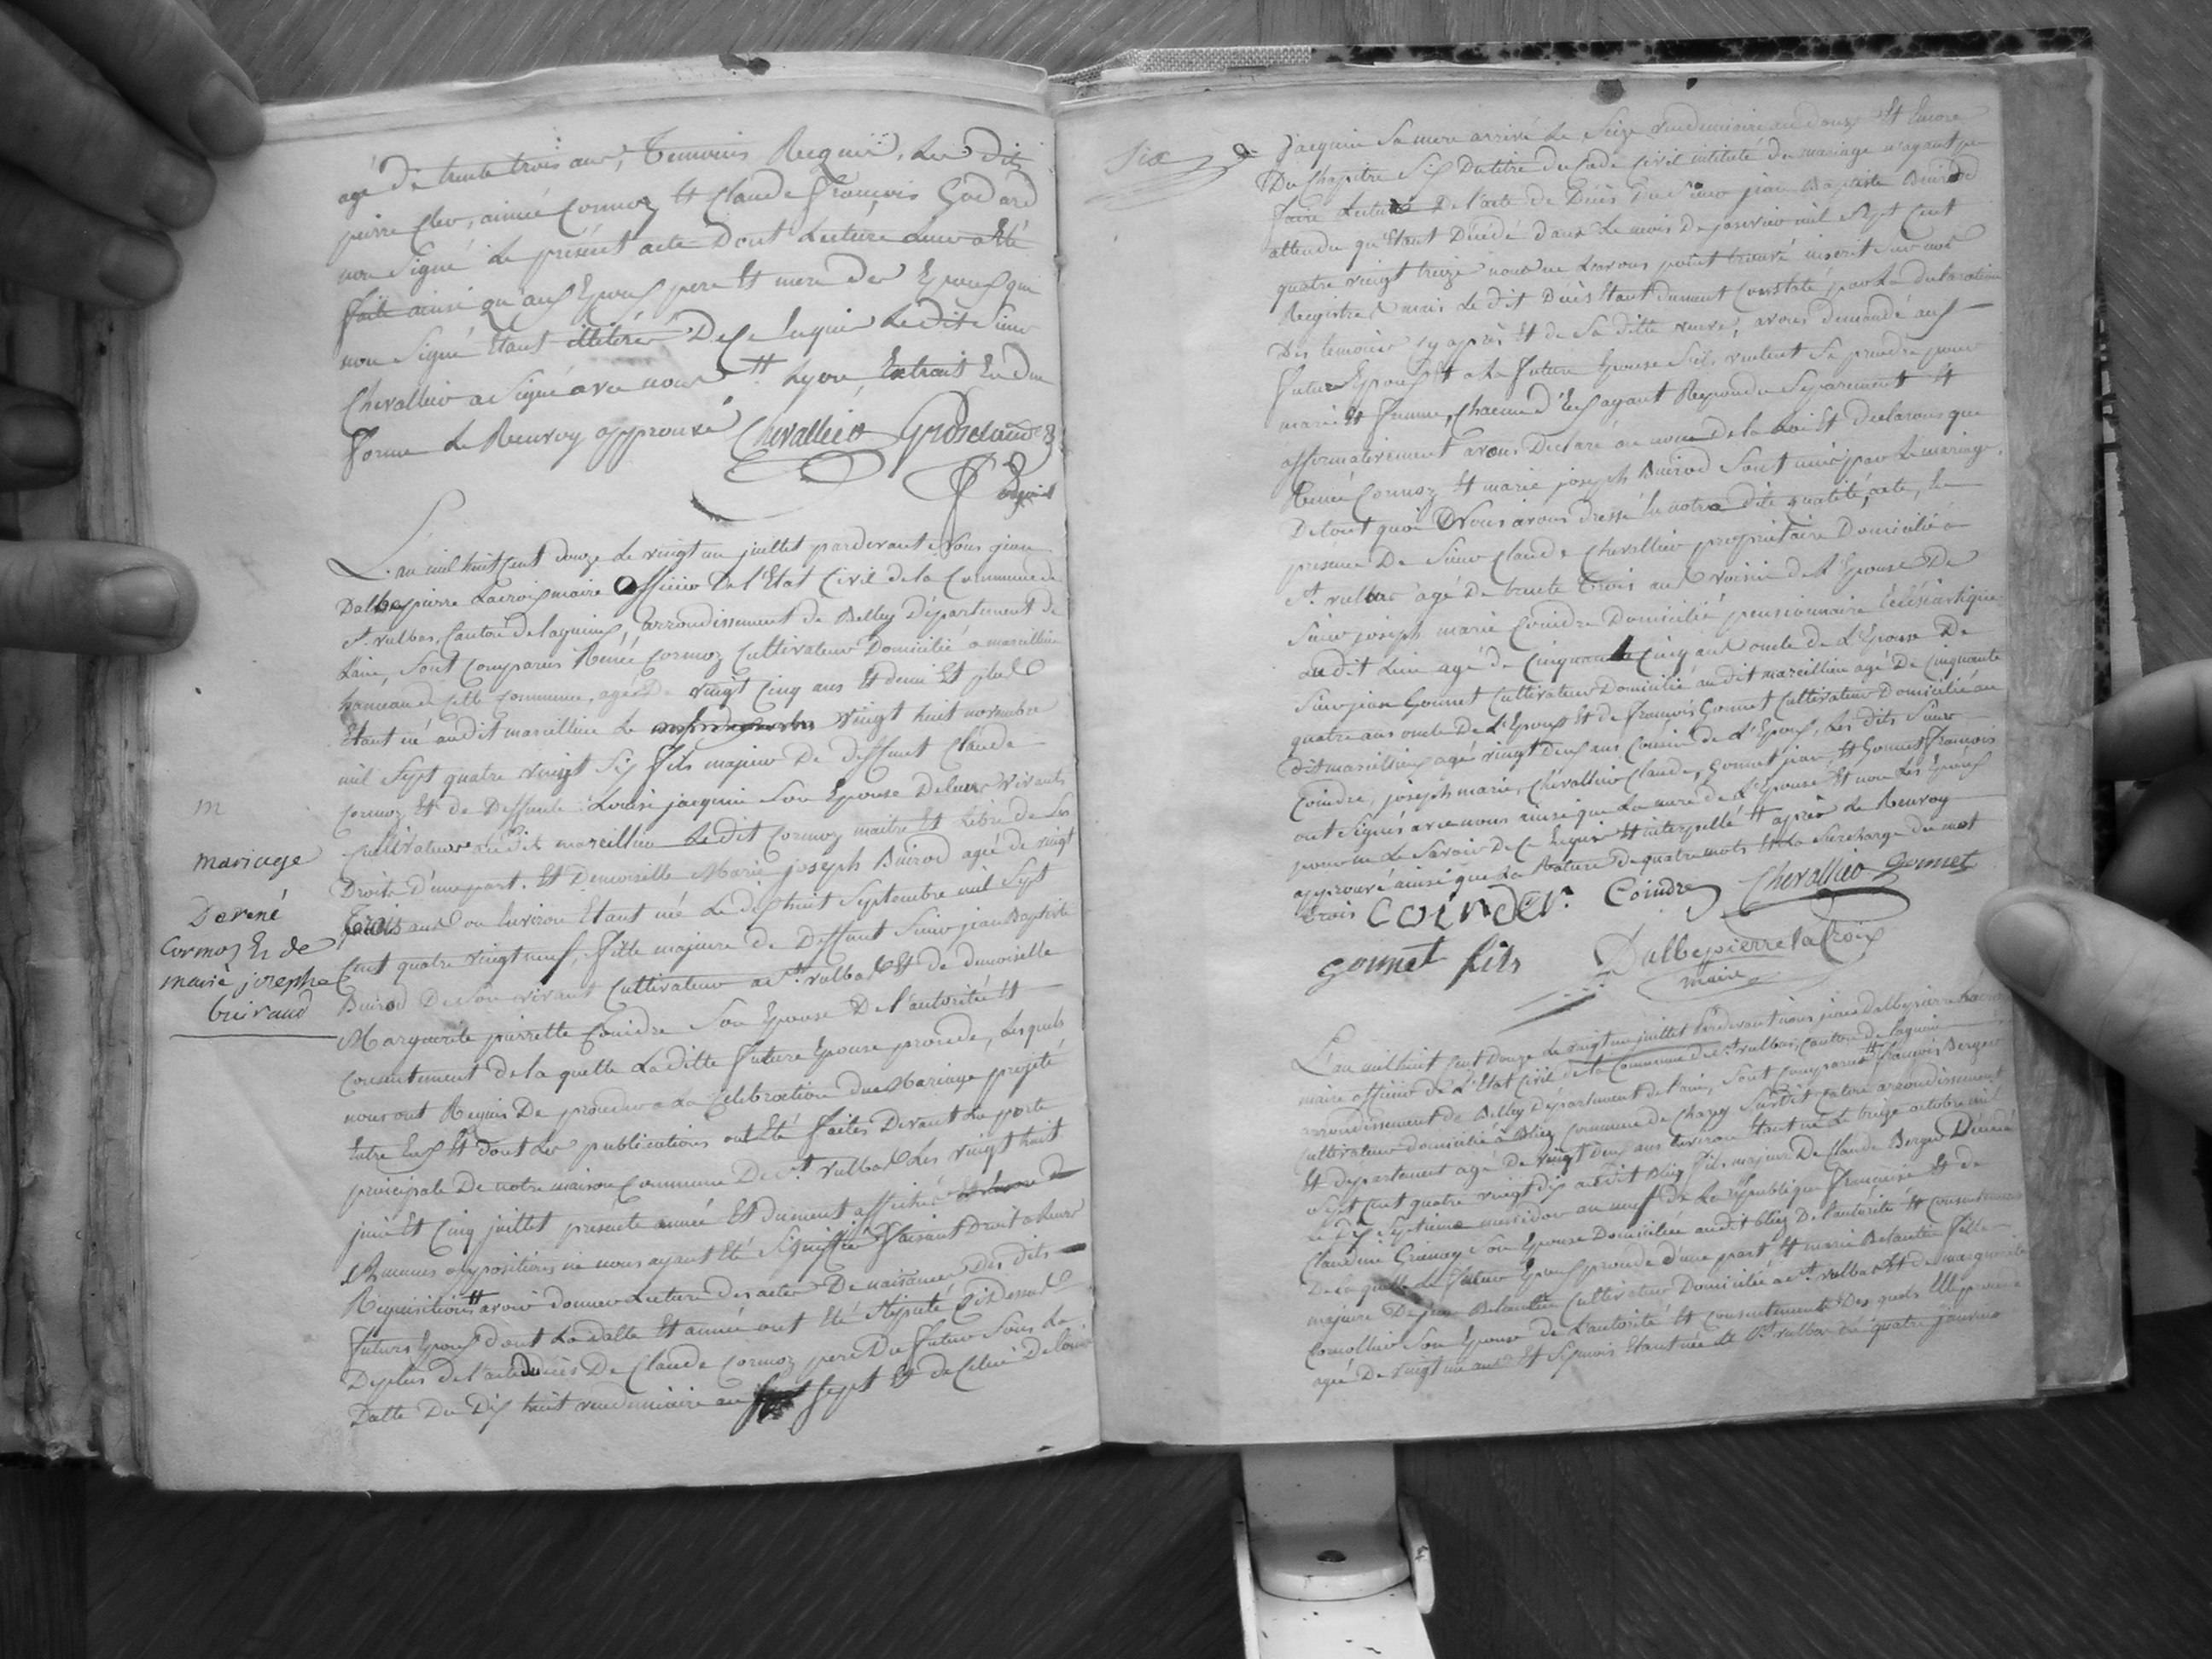 agé de trente trois ans, temoins Requis, Les dits
pierre Cleo, aimée Cormoz Et Claude francois Godard
non Signé Le présent acte Dont Lecture Leur a Eté
faite ainsi qu'aux Epoux pere Et mere des Epoux qui
non Signé Etant illiteré De Ce Enquis Le dit Sieur
Chevallier a Signé avec nous Et Extrait En due
forme Le Renvoy approuvé Chevallier
L'an mil huit Cent douze Le vingt un juillet pardevant Nous jean
Dalbepierre Lacroix maire Officier De l'Etat Civil de la Commune de
St. vulbas, Canton de lagnieu, arrondissement de Belley Département de
Lain, Sont Comparus Rénée Cormoz Cultivateur Domicilié a marcillieu
hameau de Cette Commune, agé De vingt Cinq ans Et demi Et plus
Etant né audit marcillieu Le vingt huit novembre
mil Sept quatre vingt Six fils majeur De deffunt Claude
Cormoz Et de Deffunte Louise jacquin Son Epouse De leur vivants
Cultivateurs audit marcillieu Le dit Cormoz maitre Et Libre de Ses
Droits D'une part. Et Demoiselle Marie joseph Buirod agée de vingt
trois ans ou Environ Etant née Le dix huit Septembre mil Sept
Cent quatre vingt neuf, fille majeure de Deffunt Sieur jean Baptiste
Buirod De Son vivant Cultivateur a St. vulbas Et de demoiselle
Marguerite pierrette Coindre Son Epouse De l'autorité Et
Consentement de la quelle Laditte future Epouse procede, Lesquels
nous ont Requis De proceder a La Celebration du Mariage projeté
Entre Eux Et dont Les publications ont Eté faites Devant La porte
principale De notre maison Commune De St. vulbas Les vingt huit
juin Et Cinq juillet présente année Et dument affichés
Aucunes oppositions ne nous ayant Eté Signiffié faisant Droit a Leurs
Requisitions avoir donner Lecture des actes De naissances Des dits
futurs Epoux dont La datte Et année ont Eté Stipulé Ci Dessus
Deplus de l'acte de decès De Claude Cormoz pere Du futur Sous La
Datte Du Dix huit vendemiaire an Sept Et de Celui De Louise
m
mariage
De rené
Cormoz Et de
marie josephe
buiraud
Six
jacquin Sa mere arrivé Le Seize vendemiaire an douze Et Encore
Du Chapitre Six Du titre du Code Civil intitulé du mariage n'ayant pu
faire Lecture De l'acte de Décès Du Sieur jean Baptiste Buirod
attendu qu'Etant Décédé dans Le mois De janvier mil Sept Cent
quatre vingt treize nous ne L'avons point trouvé inscrit Sur nos
Registres mais Le dit Decès Etant dument Constaté par La declaration
Des temoins cy après Et de Sa ditte veuve, avons demandé aux
futur Epoux Et a La future Epouse S'ils veulent Se prendre pour
mari Et femme, Chacun d'Eux ayant Repondu Séparement Et
affirmativement avons Declaré au nom De la Loi Et déclarons que
Renée Cormoz Et marie joseph Buirod Sont unis par Le mariage,
De tout quoi Nous avons dressé En notre dite qualité, acte, En
presence De Sieur Claude Chevallier propriétaire Domicilié a
St. vulbas agé De trente trois ans voisin De L'Epouse De
Sieur joseph marie Coindre Domicilié pensionnaire Eclésiastique
audit Lieu agé de Cinquante Cinq ans oncle de L'Epouse De
Sieur jean Gonnet Cultivateur Domicilié audit marcillieu agé De Cinquante
quatre ans oncle De L'Epoux Et de francois Gonnet Cultivateur Domicilié au
dit marcillieu agé vingt Deux ans Cousin de L'Epoux, Les dits Sieurs
Coindre, joseph marie, Chevallier Claude, Gonnet jean, Et Gonnet francois
ont Signés avec nous ainsi que La mere de L'Epouse Et non Les Epoux
pour ne Le Savoir De Ce Enquis Et interpellé Et après Le Renvoy
approuvé ainsi que La Rature de quatre mots Et La Surcharge du mot
trois Coindre. Coindre Chevallier Gonnet
gonnet fils Dalbepierre la Croix
maire
L'an mil huit Cent Douze Le vingt un juillet Pardevant nous jean Dalbepierre Lacroix
maire officier de L'Etat Civil de la Commune de St. vulbas, Canton de lagnieu
arrondissement de Belley Département de Lain, Sont Comparus francois Berger
Cultivateur domicilié à Bliez Commune de Chazey Surdit Canton arrondissement
Et département agé de vingt Deux ans Environ Etant né Le treize octobre mil
Sept Cent quatre vingt dix audit Bliez fils majeur De Claude Berger Décédé
Le dix Septieme messidor an neuf de La République francaise Et de
Claudine Son Epouse Domiciliée audit bliez De l'autorité Et Consentement
De la quelle Le futur Epoux procede d'une part Et marie Belantin fille
majeure De jean Belantin Cultivateur Domicilié a St. vulbas Et de marguerite
Cornollier Son Epouse de L'autorité Et Consentement Des quels Elle procede
agée De vingt un ans Et Six mois Etant née a St. vulbas Le quatre janvier